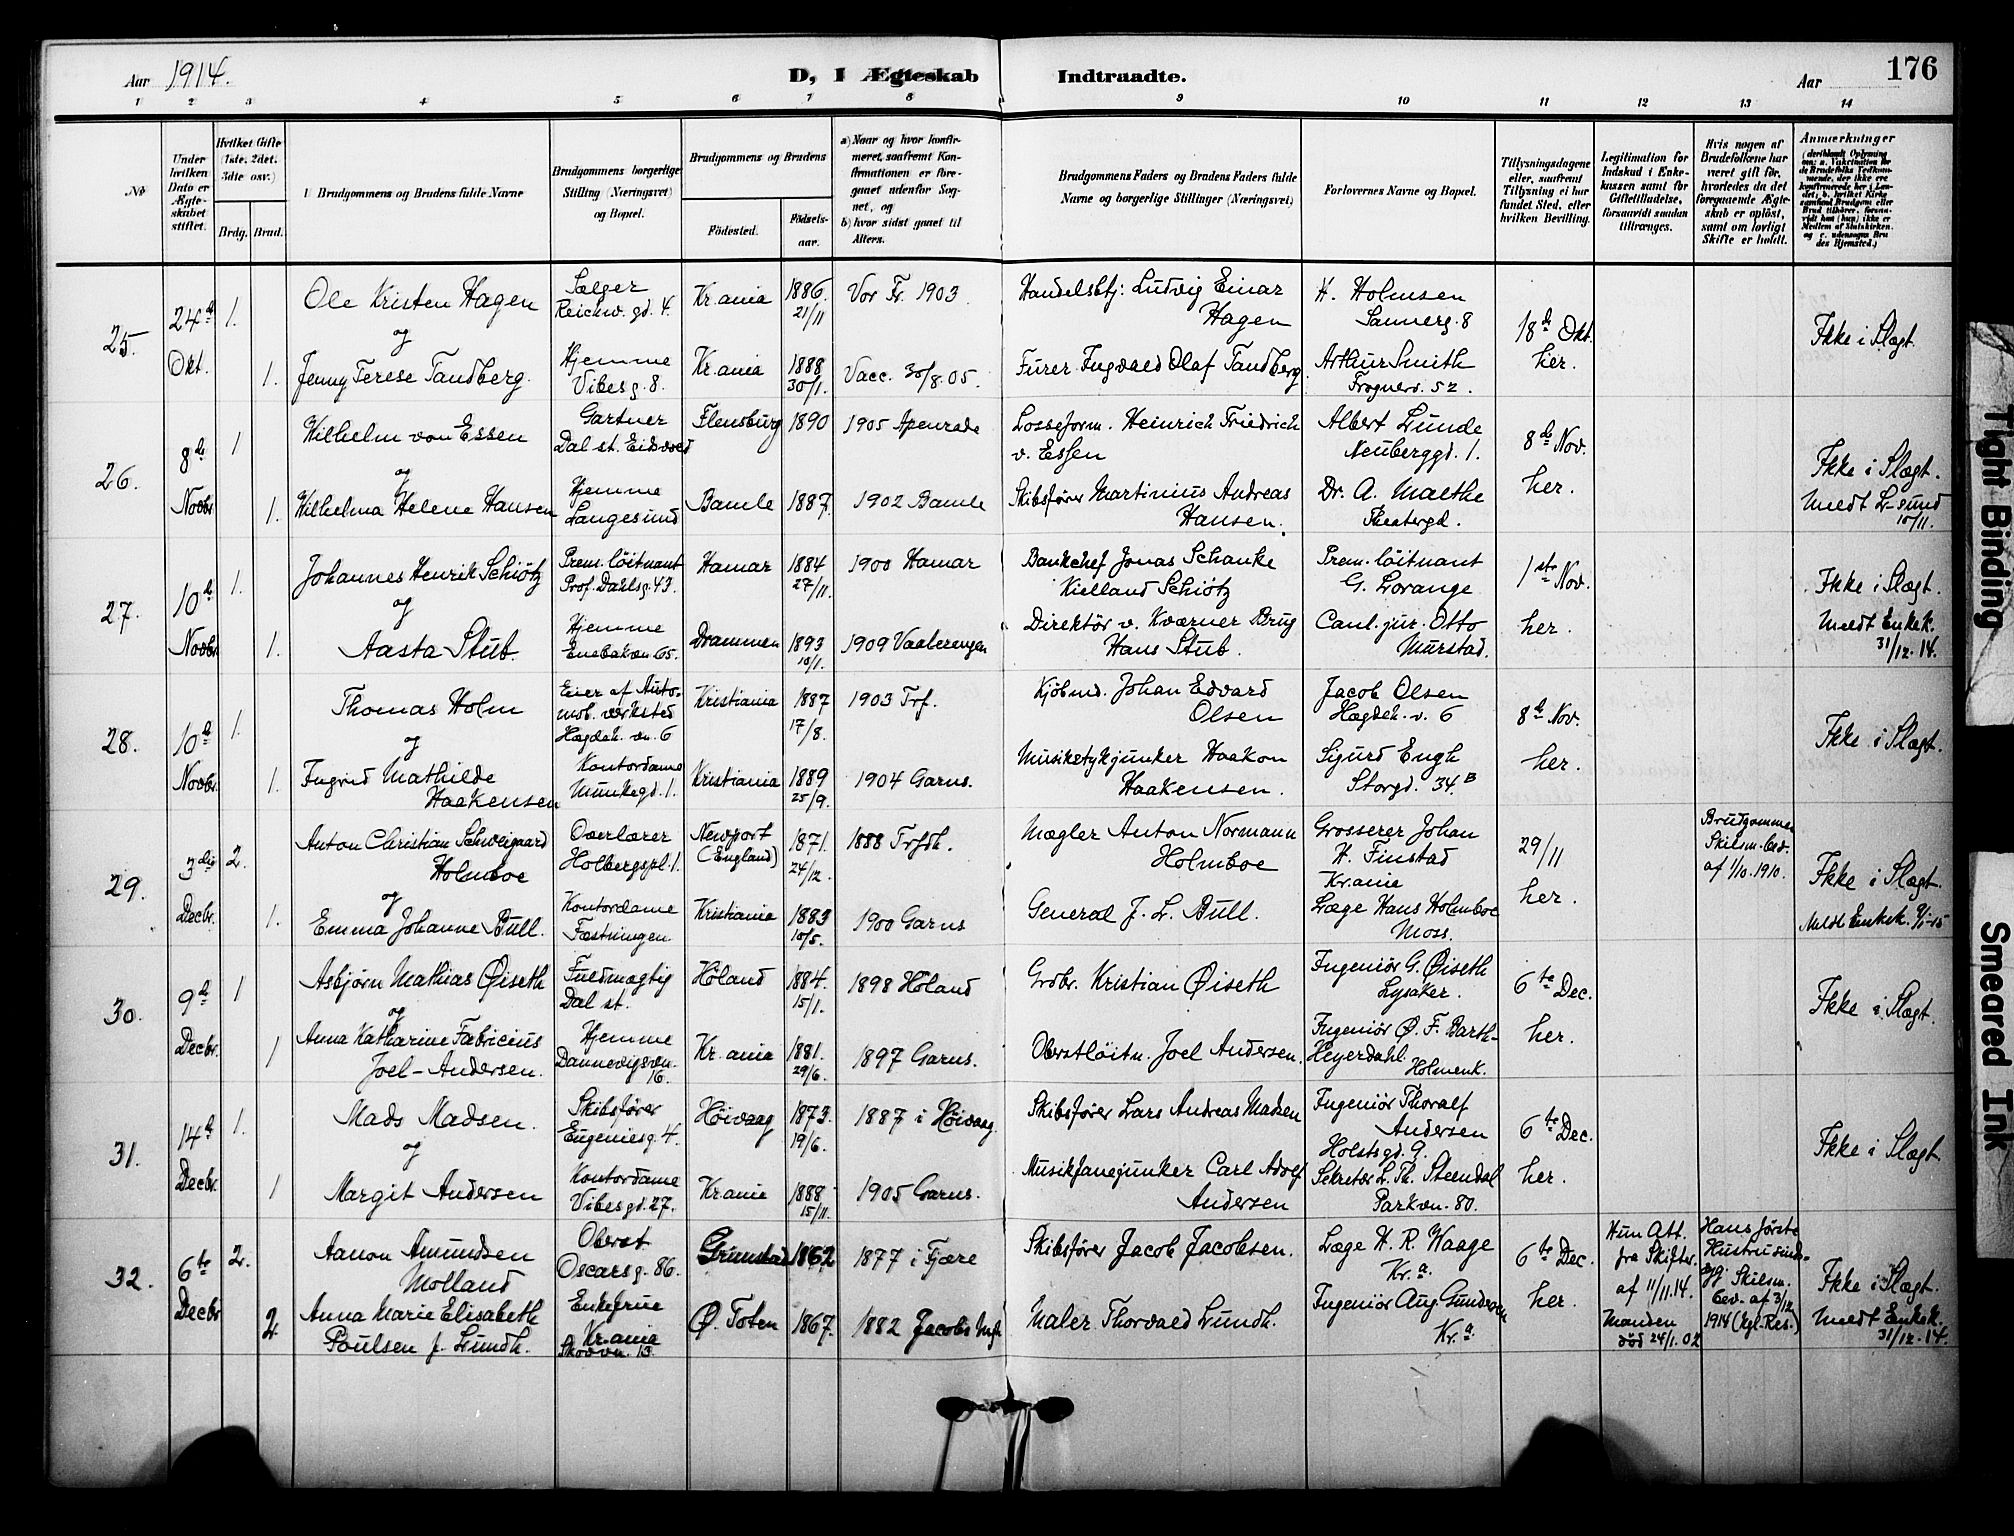 Aar 1914. D, I Ægteskab Indtraadte. Aar 176
1 2 3 4 5 6 7 8 9 10 11 12 13 14
No
Under hvilken Dato er Ægteskabet stiftet.
Hvilket Gifte (1ste, 2det, 3dte osv.)
Brdg. Brud.
Brudgommens og Brudens fulde Navne
Brudgommens borgerlige Stilling (Næringsvei) og Bopæl.
Brudgommens og Brudens
Fødested. Fødselsaar.
a) Naar og hvor konfirmeret, saafremt Konfirmationen er foregaaet udenfor Sognet, og
b) hvor sidst gaaet til Alters.
Brudgommens Faders og Brudens Faders fulde Navne og borgerlige Stillinger (Næringsvei)
Forlovernes Navne og Bopæl.
Tillysningsdagene eller, saafremt Tillysning ei har fundet Sted, efter hvilken Bevilling.
Legitimation for Indskud i Enkekassen samt for Giftetilladelse, forsaavidt saadan tiltrænges.
Hvis nogen af Brudefolkene har været gift før, hvorledes da det foregaaende Ægteskab er opløst, samt om lovligt Skifte er holdt.
Anmærkninger
25. 24de Okt. 1.
Ole Kristen Hagen
Sælger
Reichw. gd. 4.
Kr.ania 1886. 21/11
Vor Fr. 1903.
Handelsbtj: Ludvig Einar Hagen
H. Holmsen
Sannerg. 8
18de Okt. her.
Ikke i Slægt.
og
1. Jenny Terese Tandberg.
Hjemme
Vibesg. 8.
Kr.ania 1888 30/1.
Vacc. 30/8.05.
Furer Ingvald Olaf Tandberg
Arthur Smith
Frognerv. 52.
26. 8de Novbr. 1
Wilhelm von Essen
Gartner
Dal st. Eidsvold
Flensburg 1890
1905 Apenrade
Losseform. Heinrich Friedrich v. Essen
Albert Lunde
Neuberggd. 1.
8de Nov. her.
Ikke i Slægt.
Meldt L-sund 10/11.
og
1. Wilhelma Helene Hansen
Hjemme
Langesund
Bamle 1887.
1902 Bamle
Skibsfører Martinius Andreas Hansen.
Dr. A. Malthe
Theatergd.
27. 10de Novbr. 1.
Johannes Henrik Schiøtz
Prem. löitnant
Prof. Dahlsg. 43.
Hamar 1884 27/11.
1900 Hamar
Bankchef Jonas Schanke Kielland Schiøtz
Prem. löitnant
G. Lorange
1ste Nov. her.
Ikke i Slægt.
Meldt Enkek. 31/12.14.
og
1. Aasta Stub.
Hjemme
Enebakvn 65.
Drammen 1893 10/1.
1909 Vaalerengen
Direktör v. Kværner Brug
Hans Stub.
Cand. jur. Otto Mürstad.
28. 10de Novbr. 1.
Thomas Holm
Eier af Automob. verksted
Hægdeh. vn. 6
Kristiania 1887 17/8.
1903 Trf.
Kjöbmd. Johan Edvard Olsen
Jacob Olsen
Hægdeh. v. 6
8de Nov. her.
Ikke i Slægt.
og
1. Ingrid Mathilde Haakensen
Kontordame
Munkegd. 1.
Kristiania 1889 25/9.
1904 Garns.
Musikstykjunker Haakon Haakensen.
Sigurd Engh
Storgd. 34.B
29. 3die Decbr. 2.
Anton Christian Schweigaard Holmboe
Overlærer
Holbergspl. 1.
Newport (England) 1871. 24/12.
1888 Trfdh.
Mægler Anton Normann Holmboe
Grosserer Johan H. Finstad
Kr.ania
29/11 her.
Brudgommen Skilsm. bev. af 1/10.1910.
Ikke i Slægt.
Meldt Enkek. 9/1-15
og
1. Emma Johanne Bull.
Kontordame
Fæstningen
Kristiania 1883 10/5.
1900 Garns
General J. L. Bull.
Læge Hans Holmboe
Moss.
30. 9de Decbr. 1
Asbjørn Mathias Øiseth
Fuldmægtig
Dal st.
Höland 1884. 15/1.
1898 Höland
Grdbr. Kristian Øiseth
Ingeniör G. Øiseth
Lysaker.
6te Dec. her.
Ikke i Slægt.
og
1 Anna Katharine Fabricius Joel-Andersen.
Hjemme
Dannevigsvn. 16.
Kr.ania 1881. 29/6.
1897 Garns.
Oberstlöitn. Joel Andersen.
Ingeniör Ø. F. Barth-Heyerdahl.
Holmenk.
31. 14de Decbr. 1.
Mads Madsen.
Skibsfører
Eugeniesg. 4.
Höivaag 1873. 19/6.
1887 i Höivaag
Skibsfører Lars Andreas Madsen
Ingeniör Thoralf Andersen
Holstsgd. 9.
6te Dec. her.
Ikke i Slægt
og
1 Margit Andersen
Kontordame
Vibesgd. 27.
Kr.ania 1888 15/11.
1905 Garns.
Musikfanejunker Carl Adolf Andersen
Sekretær L. Th. Steendal
Parkvn. 80.
32. 6te Decbr. 2.
Aanon Amundsen Molland
Oberst
Oscarsg. 86.
Grimstad 1862
1877 i Fjære
Skibsfører Jacob Jacobsen.
Læge H. R. Waage
Kr.a.
6te Dec. her.
Hun Att. fra Skifter. af 11/11.14.
Manden död 24/1.02
Hans förste Hustru Skilsm. bev. af 3/12 1914 (kgl. Res.)
Ikke i Slægt.
Meldt Enkek. 31/12.14.
2. Anna Marie Elisabeth Poulsen f. Lundh.
Enkefrue
Kr.ania
Skovvn. 13.
Ø. Toten 1867.
1882 Jacobs
Maler Thorvald Lundh.
Ingeniör Aug. Gundersen
Kr.a.
Tight Binding
Smeared Ink